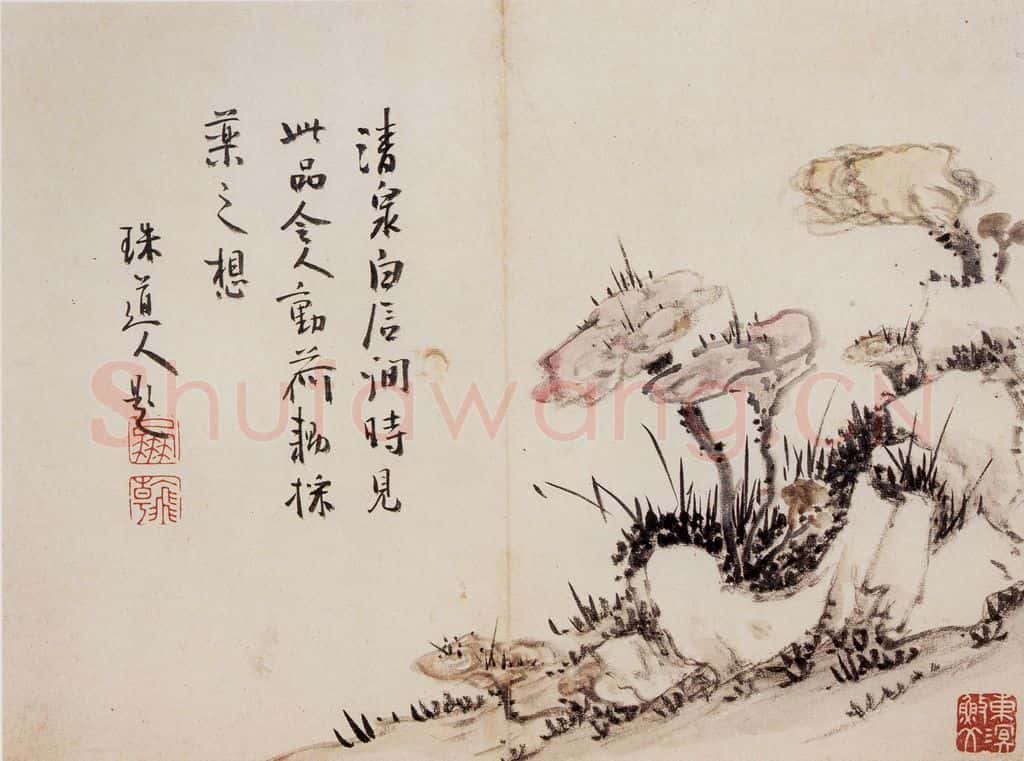 清泉白澗時見
此品令人動荷耡採
藥之想
珠道人題
Shufawang.CN